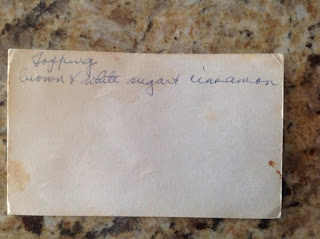 Topping
brown & white sugar & cinnamon